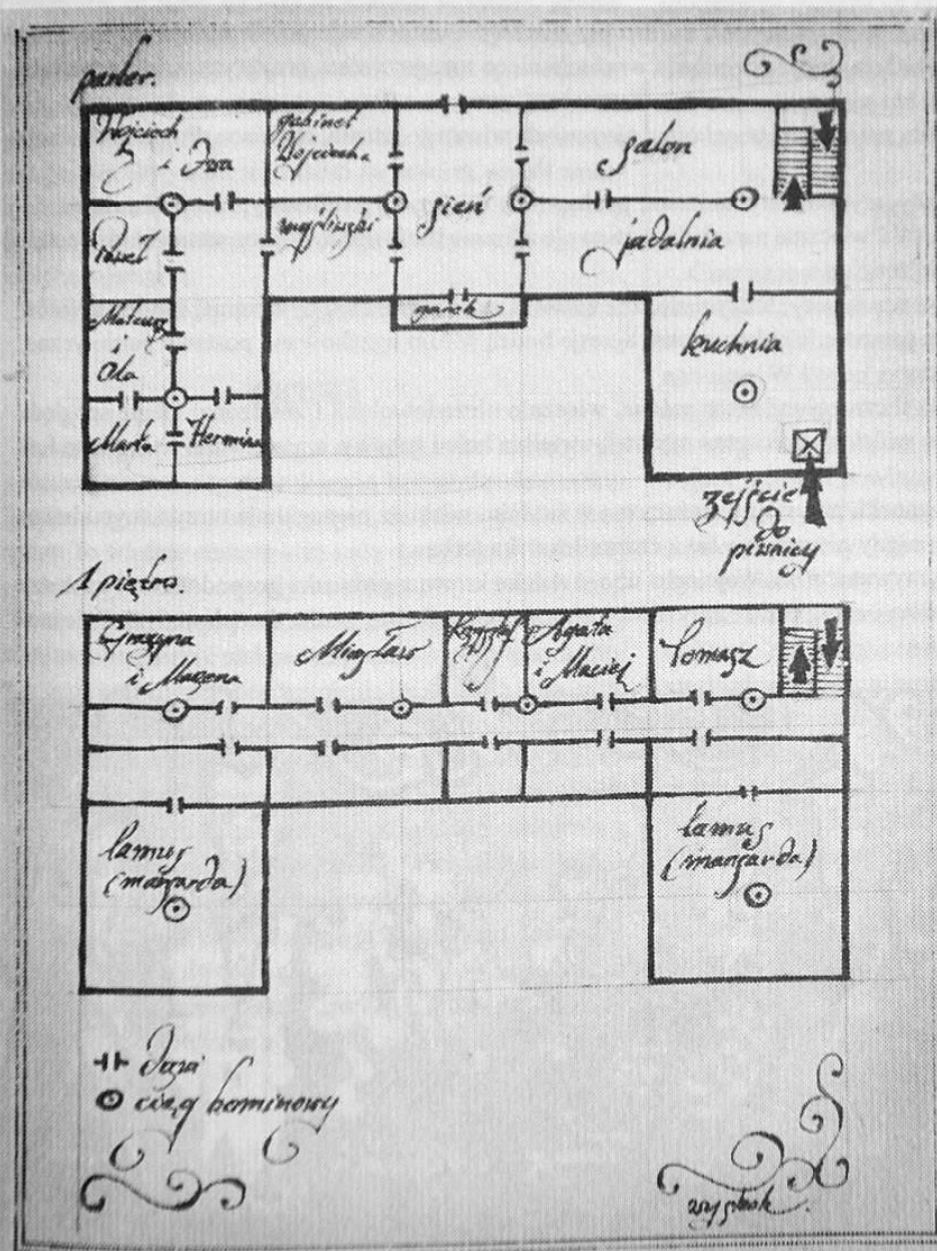 parter.
Wojciech
i Iza
gabinet
Wojciecha
salon
Paweł
myśliwski
sień
jadalnia
ganek
Mateusz
kuchnia
Ola
Marta
Hermina
zejście
do
piwnicy
1 piętro
Grażyna
i Marzena
Mieczysław
Krzysztof
Agata
i Maciej
Tomasz
lamus
(mansarda)
lamus
(mansarda)
drzwi
ciąg kominowy